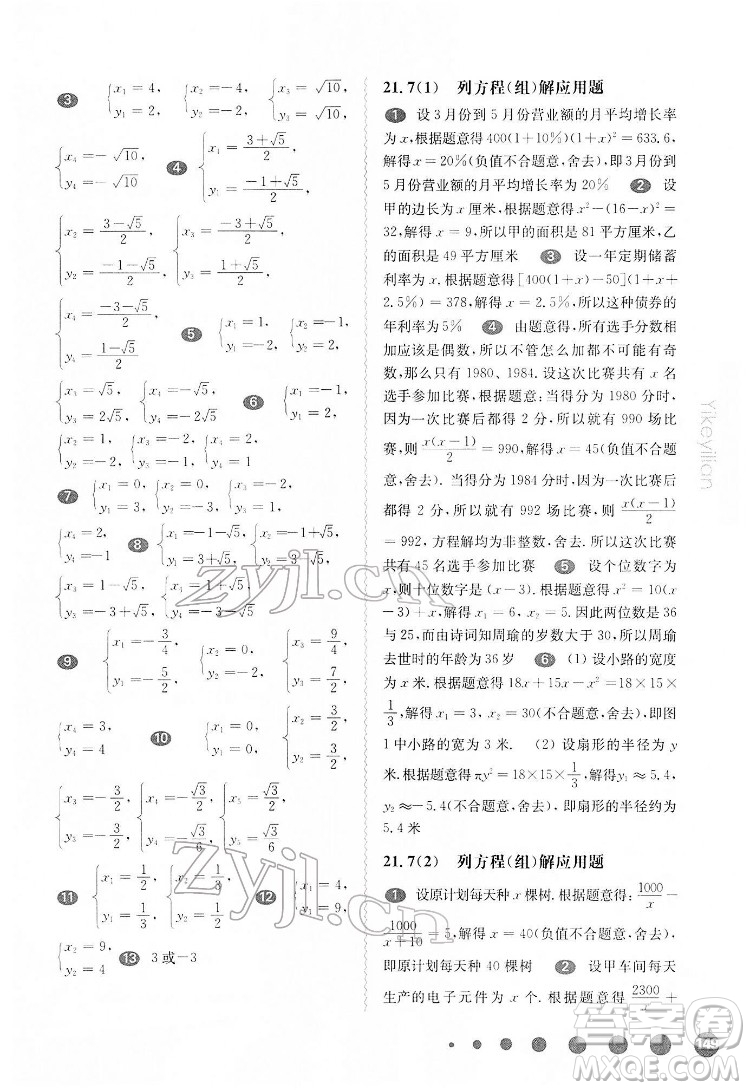 3 {x₁=4, y₁=2, {x₂=-4, y₂=-2, {x₃=√10, y₃=√10,
{x₄=-√10, y₄=-√10 4 {x₁=(3+√5)/2, y₁=(-1+√5)/2,
{x₂=(3-√5)/2, y₂=(-1-√5)/2, {x₃=(-3+√5)/2, y₃=(1+√5)/2,
{x₄=(-3-√5)/2, y₄=(1-√5)/2 5 {x₁=1, y₁=2, {x₂=-1, y₂=-2,
{x₃=√5, y₃=2√5, {x₄=-√5, y₄=-2√5 6 {x₁=1, y₁=2,
{x₂=1, y₂=1, {x₃=-2, y₃=-1, {x₄=-2, y₄=-2
7 {x₁=0, y₁=1, {x₂=0, y₂=-3, {x₃=1, y₃=0,
{x₄=2, y₄=-1 8 {x₁=-1-√5, y₁=3+√5, {x₂=-1+√5, y₂=3-√5,
{x₃=1-√5, y₃=-3+√5, {x₄=1+√5, y₄=-3-√5
9 {x₁=-3/4, y₁=-5/2, {x₂=0, y₂=-1, {x₃=9/4, y₃=7/2,
{x₄=3, y₄=4 10 {x₁=0, y₁=0, {x₂=3/2, y₂=3/2,
{x₃=-3/2, y₃=-3/2, {x₄=-√3/2, y₄=√3/6, {x₅=√3/2, y₅=-√3/6
11 {x₁=1/2, y₁=1/3, {x₂=1/3, y₂=1/2 12 {x₁=4, y₁=9,
{x₂=9, y₂=4 13 3或-3
21.7(1) 列方程(组)解应用题
1 设3月份到5月份营业额的月平均增长率
为x,根据题意得400(1+10%)(1+x)²=633.6,
解得x=20%(负值不合题意,舍去),即3月份到
5月份营业额的月平均增长率为20% 2 设
甲的边长为x厘米,根据题意得x²-(16-x)²=
32,解得x=9,所以甲的面积是81平方厘米,乙
的面积是49平方厘米 3 设一年定期储蓄
利率为x.根据题意得[400(1+x)-50](1+x+
2.5%)=378,解得x=2.5%,所以这种债券的
年利率为5% 4 由题意得,所有选手分数相
加应该是偶数,所以不管怎么加都不可能有奇
数,那么只有1980、1984.设这次比赛共有x名
选手参加比赛,根据题意:当得分为1980分时,
因为每次比赛后都得2分,所以有990场比
赛,则x(x-1)/2=990,解得x=45(负值不合题
意,舍去).当得分为1984分时,因为一次比赛后
都得2分,所以就有992场比赛,则x(x-1)/2
=992,方程解均为非整数,舍去.所以这次比赛
共有45名选手参加比赛 5 设个位数字为
x,十位数字是(x-3).根据题意得x²=10(x
-3)+x,解得x₁=6,x₂=5.因此两位数是36
与25,而由诗词知周瑜的岁数大于30,所以周瑜
去世时的年龄为36岁 6 (1)设小路的宽度
为x米.根据题意得18x+15x-x²=18×15×
1/3,解得x₁=3,x₂=30(不合题意,舍去),即图
1中小路的宽为3米. (2)设扇形的半径为y
米.根据题意得πy²=18×15×1/3,解得y₁≈5.4,
y₂≈-5.4(不合题意,舍去),即扇形的半径约为
5.4米
21.7(2) 列方程(组)解应用题
1 设原计划每天种x棵树.根据题意得:1000/x-
1000/(x+10)=5,解得x=40(负值不合题意,舍去),
即原计划每天种40棵树 2 设甲车间每天
生产的电子元件为x个.根据题意得2300/x+
Yikeyilian
149
zyjl.cn
Zyjl.cn
答案卷
MXQE.COM